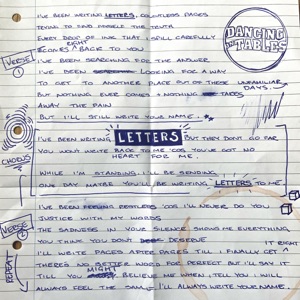 I've been writing LETTERS, countless pages
trying to find myself the truth
every drop of ink that I spill carefully
eight
echoes back to you
I've been searching for the answer
I've been looking for a way
to get to another place out of these unfamiliar
days.
But nothing ever comes + nothing takes
away the pain
But I'll still write your name.
DANCING
ON
TABLES
VERSE 1
I've been writing LETTERS but they don't go far
You won't write back to me 'cos you've got no
heart for me.
CHORUS
While I'm standing I'll be sending
one day maybe you'll be writing LETTERS to me
I've been feeling restless 'cos I'll never do you
justice with my words
VERSE 2
The sadness in your silence shows me everything
you think you don't deserve
it right
I'll write pages after pages till I finally get
There's no better word for perfect but I'll say it
might
till you believe me when I tell you I will
always feel the same I'll always write your name.
REPEAT